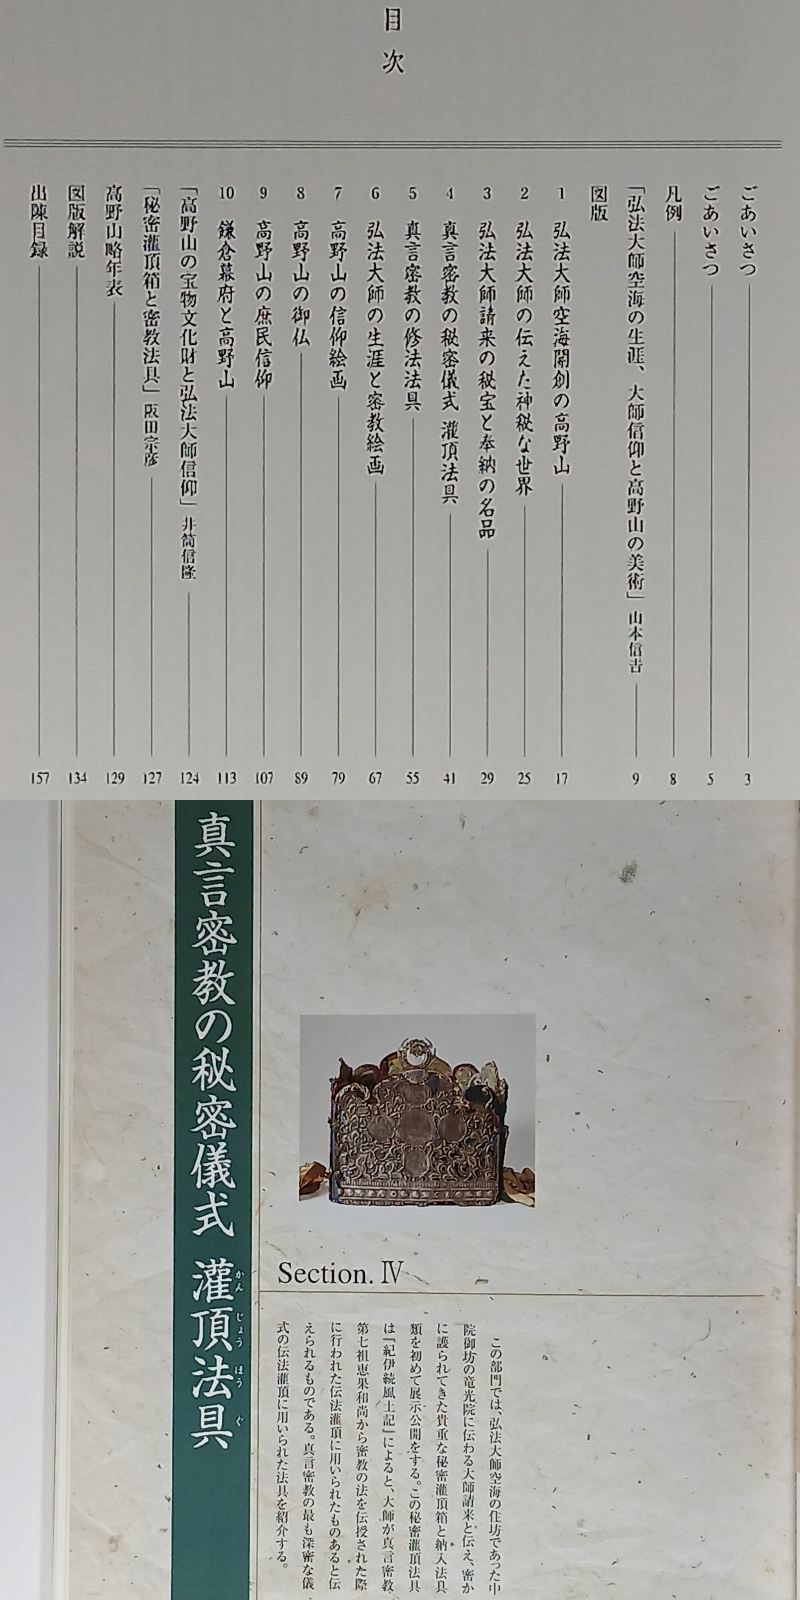 目次
ごあいさつ 3
ごあいさつ 5
凡例 8
「弘法大師空海の生涯、大師信仰と高野山の美術」 山本信吉 9
図版
1 弘法大師空海開創の高野山 17
2 弘法大師の伝えた神秘な世界 25
3 弘法大師請来の秘宝と奉納の名品 29
4 真言密教の秘密儀式 灌頂法具 41
5 真言密教の修法法具 55
6 弘法大師の生涯と密教絵画 67
7 高野山の信仰絵画 79
8 高野山の御仏 89
9 高野山の庶民信仰 107
10 鎌倉幕府と高野山 113
「高野山の宝物文化財と弘法大師信仰」 井筒信隆 124
「秘密灌頂箱と密教法具」 阪田宗彦 127
高野山略年表 129
図版解説 134
出陳目録 157
Section. Ⅳ
この部門では、弘法大師空海の住坊であった中
院御坊の竜光院に伝わる大師請来と伝え、密か
に護られてきた貴重な秘密灌頂箱と納入法具
類を初めて展示公開をする。この秘密灌頂法具
は『紀伊続風土記』によると、大師が真言密教
第七祖恵果和尚から密教の法を伝授された際
に行われた伝法灌頂に用いられたものあると伝
えられるものである。真言密教の最も深密な儀
式の伝法灌頂に用いられた法具を紹介する。
真言密教の秘密儀式 灌頂法具
かんじょうほうぐ